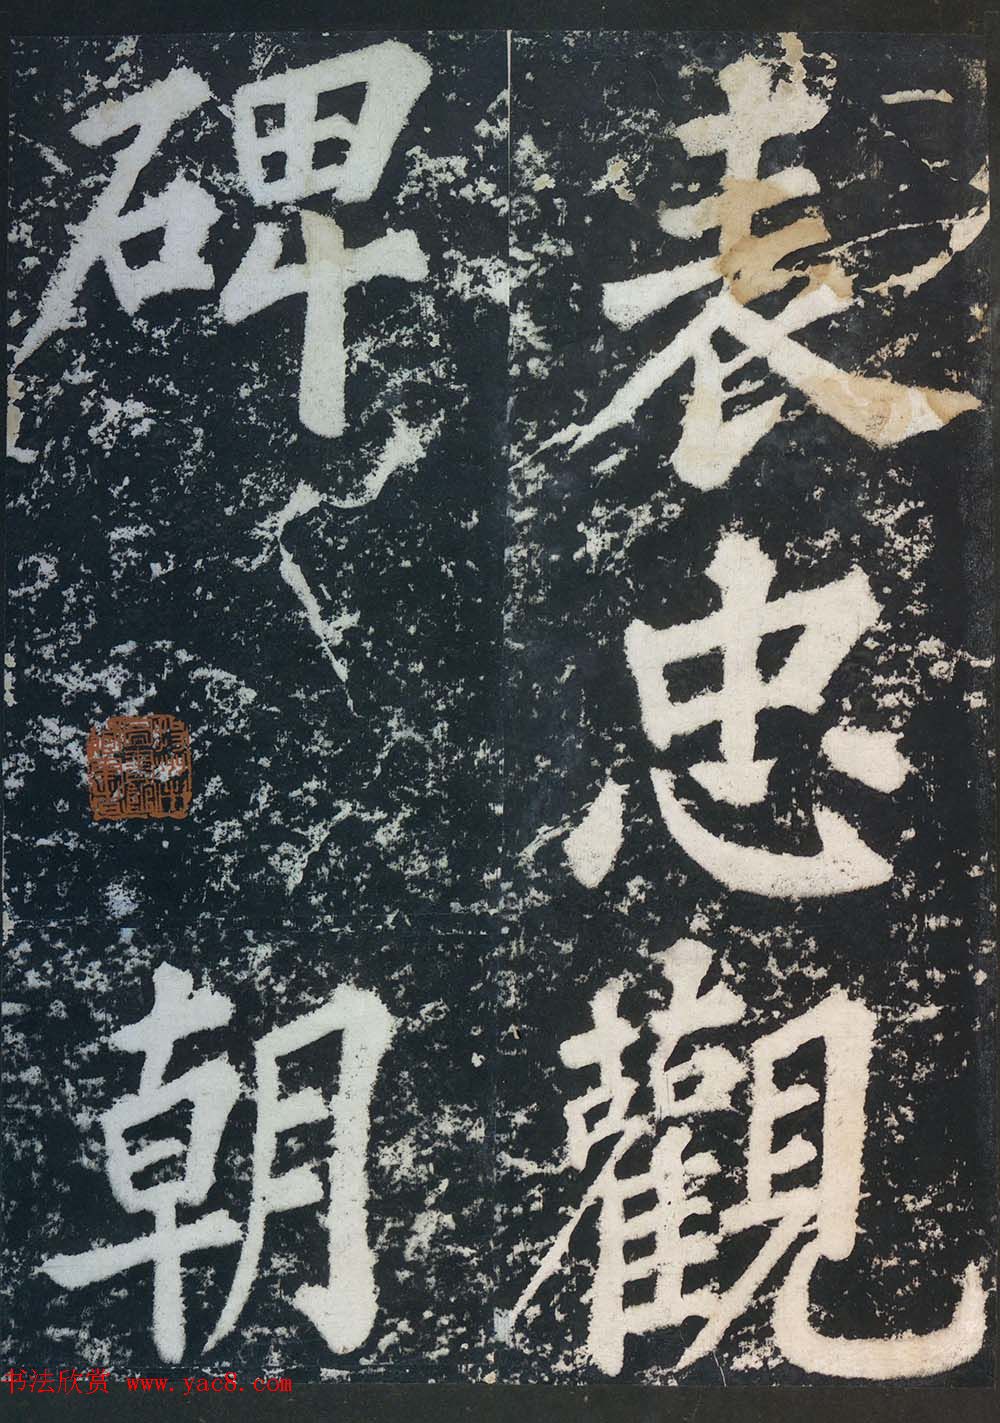 表忠觀
碑
朝
书法欣赏 www.yac8.com